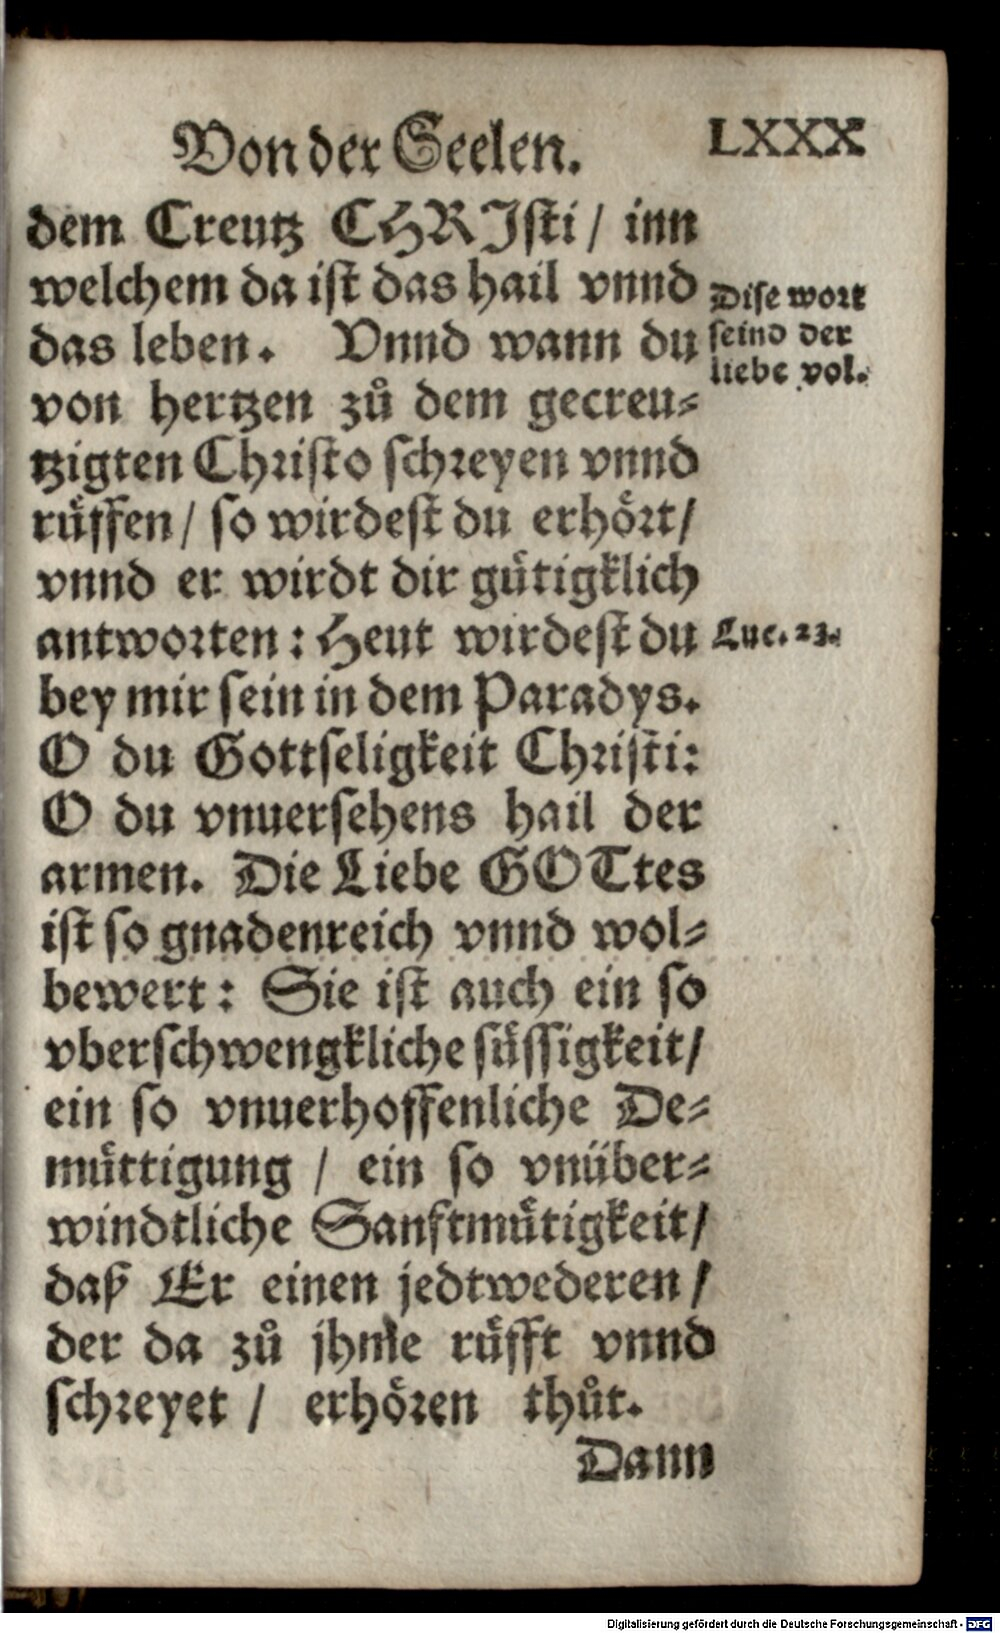 Von der Seelen.
LXXX
dem Creutz CHRJſti / inn
welchem da iſt das hail vnnd
das leben. Vnnd wann du
von hertzen zů dem gecreu⸗
tzigten Chriſto ſchreyen vnnd
rüffen / ſo wirdeſt du erhört /
vnnd er wirdt dir gütigklich
antworten: Heut wirdeſt du
bey mir ſein in dem Paradys.
O du Gottſeligkeit Chriſti:
O du vnuerſehens hail der
armen. Die Liebe GOTtes
iſt ſo gnadenreich vnnd wol⸗
bewert: Sie iſt auch ein ſo
vberſchwengkliche ſüſſigkeit /
ein ſo vnuerhoffenliche De⸗
müttigung / ein ſo vnüber⸗
windtliche Sanftmütigkeit /
daß Er einen jedtwederen /
der da zů jhme rüfft vnnd
ſchreyet / erhören thůt.
Dann
Diſe wort
ſeind der
liebe vol.
Luc. 23.
Digitalisierung gefördert durch die Deutsche Forschungsgemeinschaft - DFG